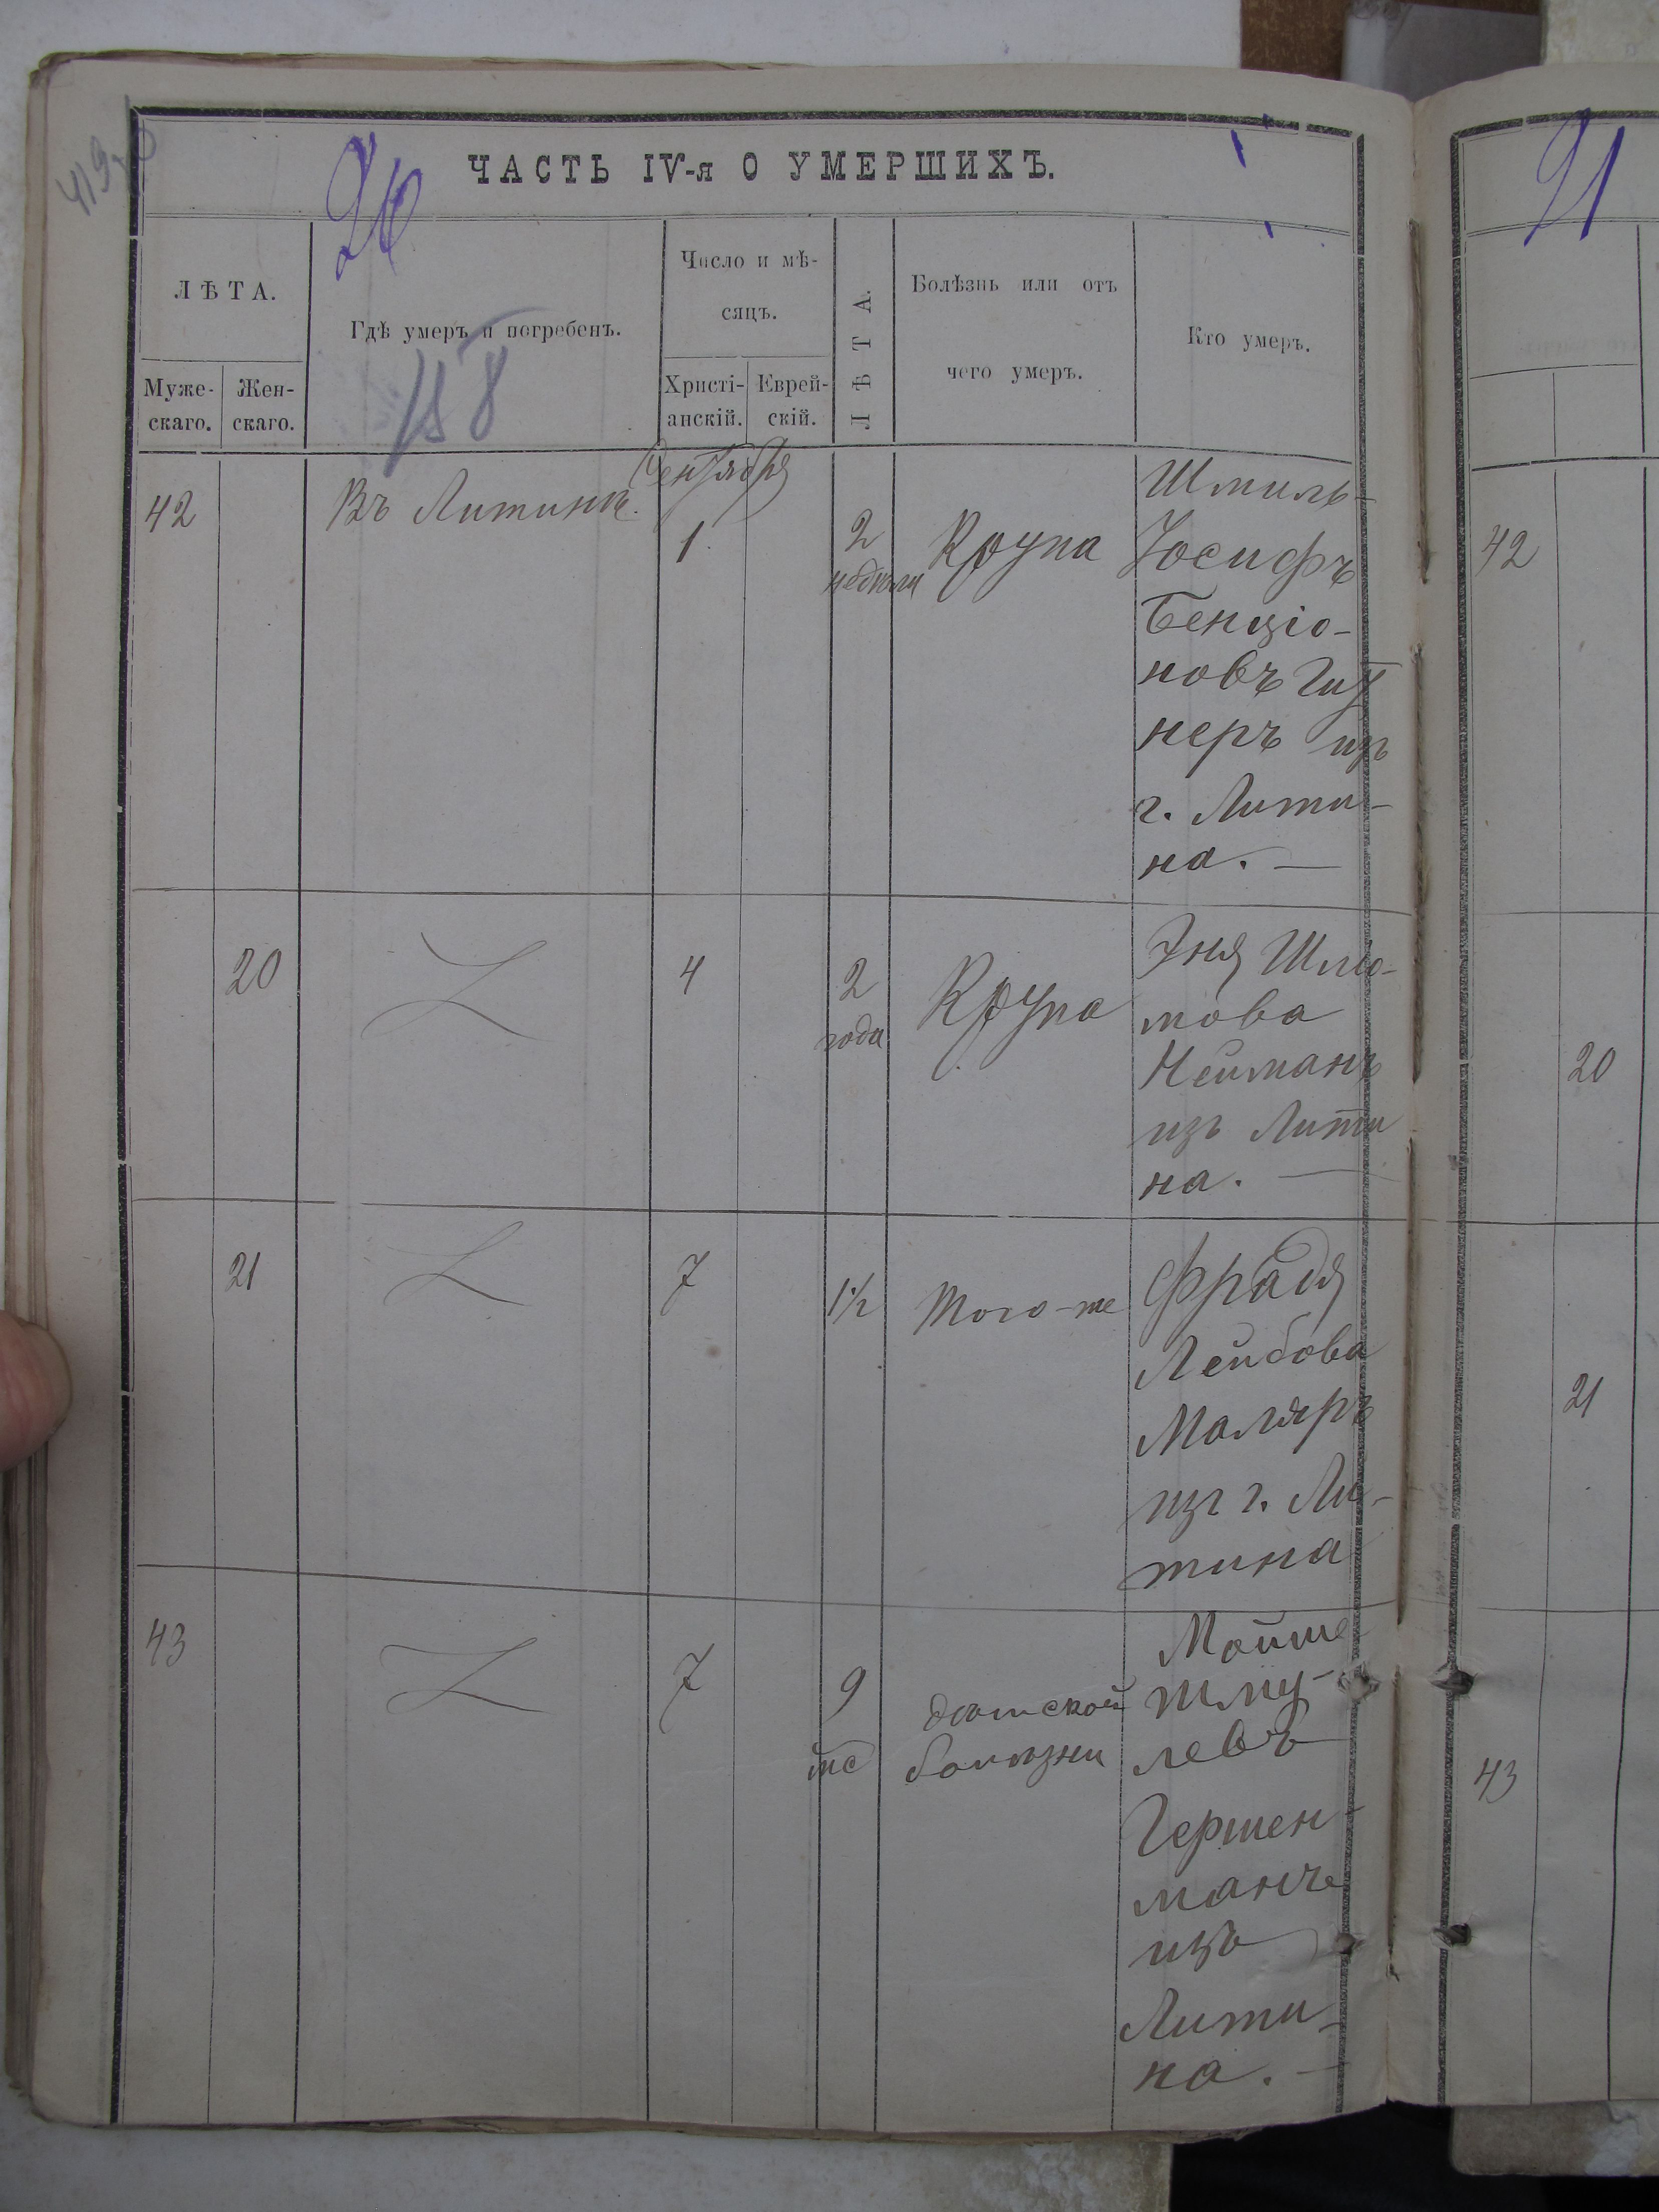 ЧАСТЬ IV-я О УМЕРШИХЪ.
26
21
ЛѢТА.
Муже-
скаго.
Жен-
скаго.
Гдѣ умеръ и погребенъ.
Число и мѣ-
сяцъ.
Христі-
анскій.
Еврей-
скій.
ЛѢТА.
Болѣзнь или отъ
чего умеръ.
Кто умеръ.
42
Въ Литинѣ.
Сентября
1.
2
недѣли
Крупа
Шмиль-
Іосифъ
Бенціо-
новъ Гит
неръ изъ
г. Лити-
на. —
42
20
4
2
года
Крупа
Эня Шлио-
мова
Нейманъ
изъ Лити
на. —
20
21
7
1½
Того-же
Фрадя
Лейбова
Маляръ
изъ г. Ли-
тина
21
43
7
9
мс
дѣтской
болѣзни
Мойше
Шму-
левъ
Гершен-
манъ
изъ
Лити-
на. —
43